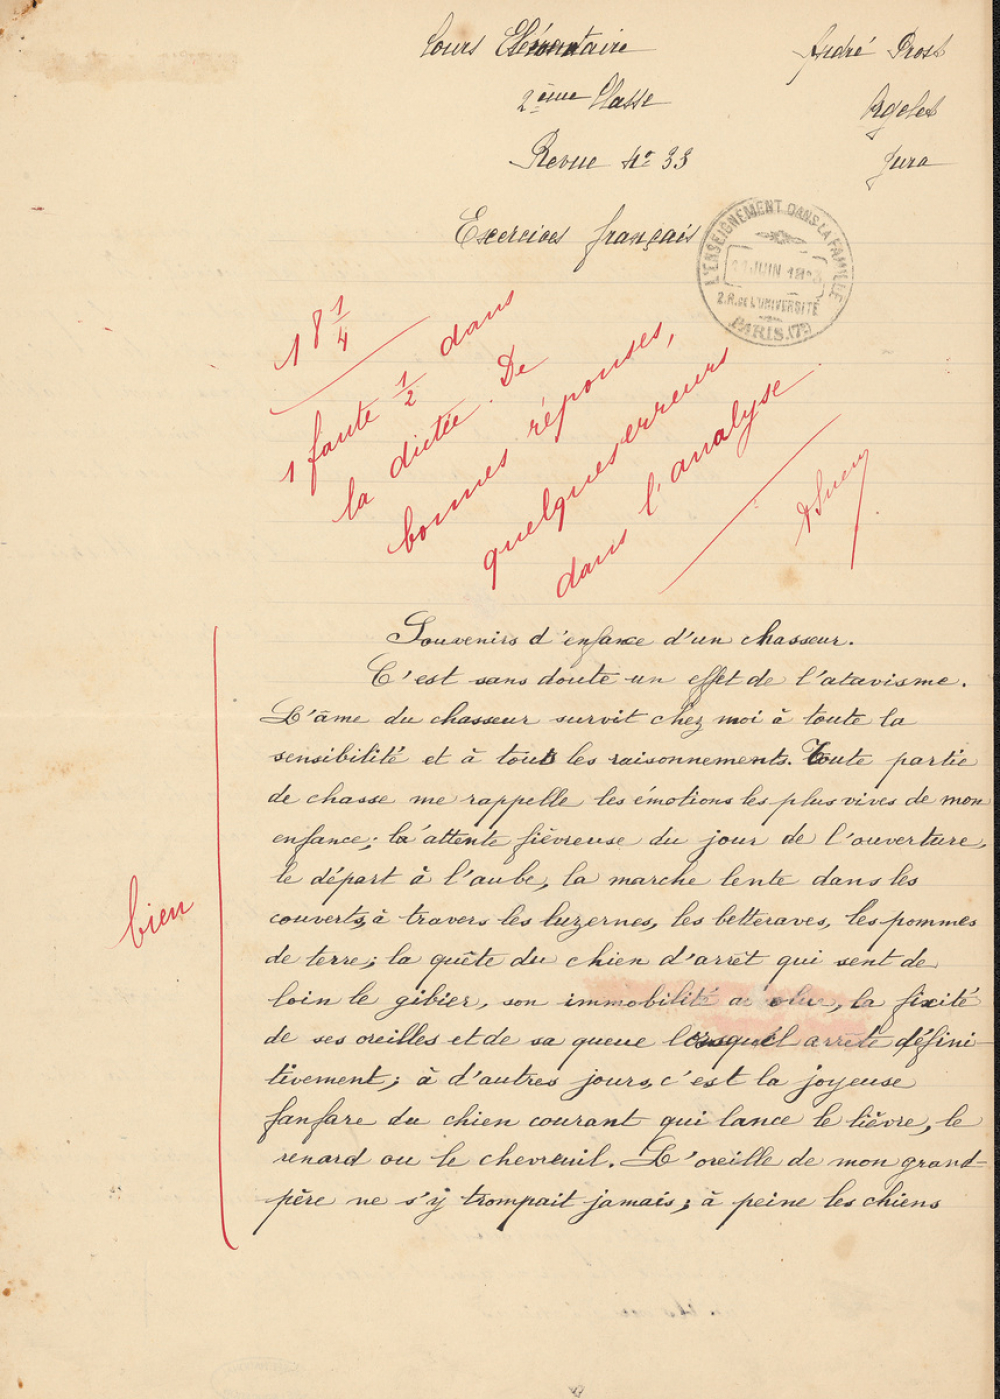 Cours Elémentaire
André Prost
2ème Classe
Orgelet
Revue No 33
Jura
Exercices français
L'ENSEIGNEMENT DANS LA FAMILLE
JUIN
2.R. DE L'UNIVERSITÉ
PARIS.(7e)
18 1/4
1 faute 1/2 dans
la dictée. De
bonnes réponses,
quelques erreurs
dans l'analyse
Souvenirs d'enfance d'un chasseur.
C'est sans doute un effet de l'atavisme.
L'âme du chasseur survit chez moi à toute la
sensibilité et à tous les raisonnements. Toute partie
de chasse me rappelle les émotions les plus vives de mon
enfance; la attente fièvreuse du jour de l'ouverture,
le départ à l'aube, la marche lente dans les
couverts, à travers les luzernes, les betteraves, les pommes
de terre; la quête du chien d'arrêt qui sent de
loin le gibier, son immobilité a olue, la fixité
de ses oreilles et de sa queue lorsqu'il arrête défini-
tivement; à d'autres jours, c'est la joyeuse
fanfare du chien courant qui lance le lièvre, le
renard ou le chevreuil. L'oreille de mon grand-
père ne s'y trompait jamais; à peine les chiens
bien